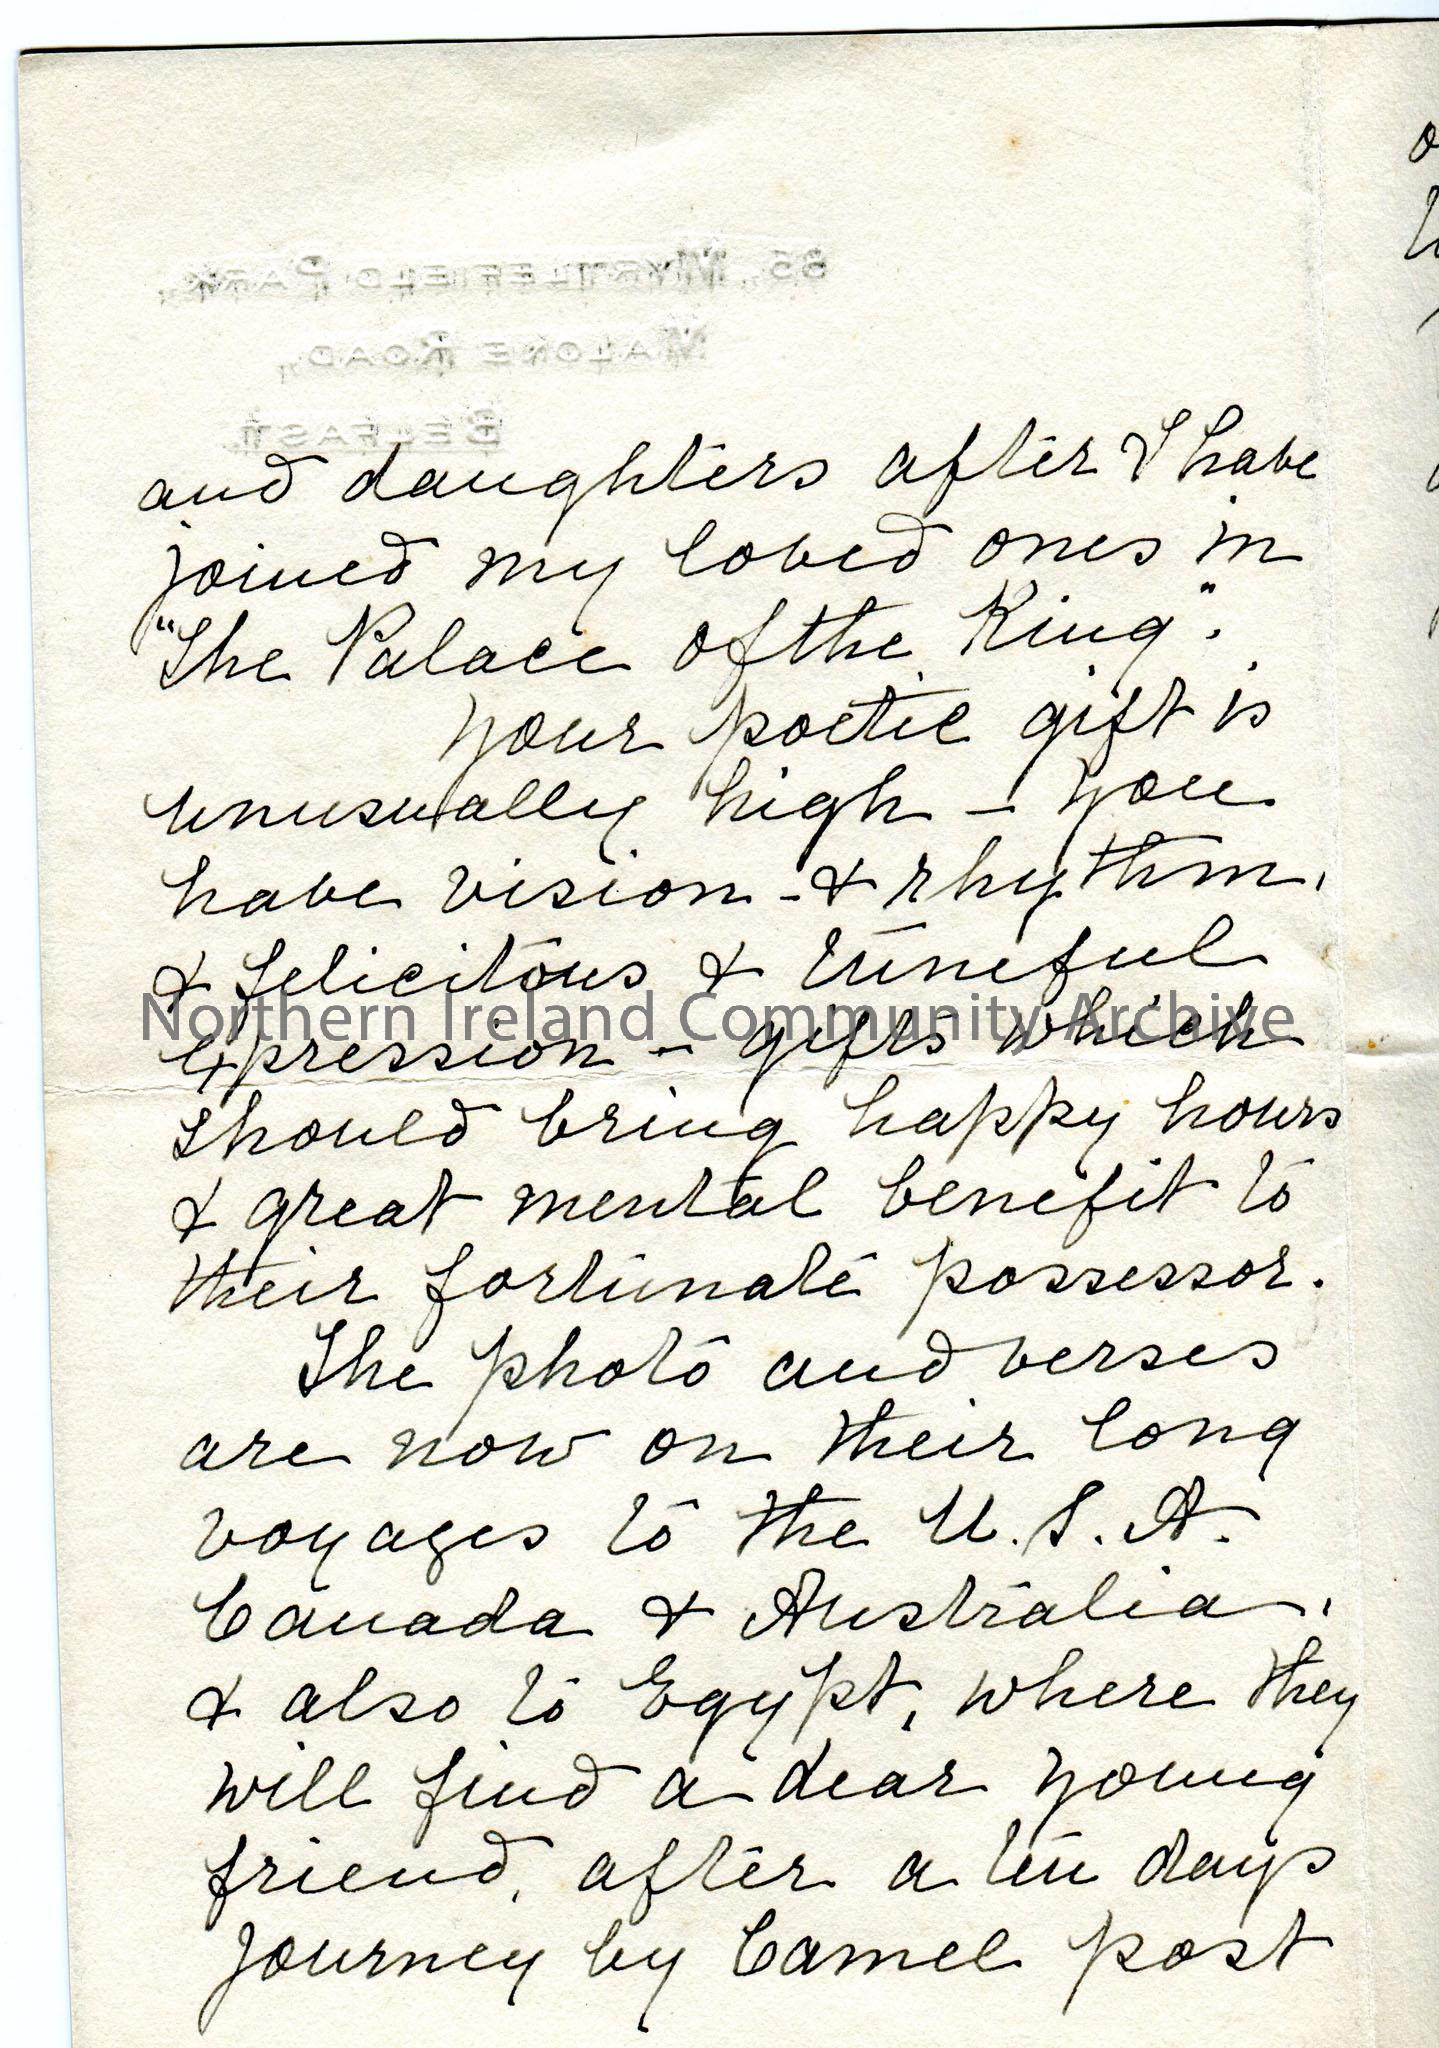 35, Myrtlefield Park,
Malone Road,
Belfast.
and daughters after I have
joined my loved ones in
"The Palace of the King".
Your poetic gift is
unusually high – you
have vision – & rhythm,
& felicitous & tuneful
expression – gifts which
should bring happy hours
& great mental benefit to
their fortunate possessor.
The photo and verses
are now on their long
voyages to the U.S.A.
Canada & Australia,
& also to Egypt, where they
will find a dear young
friend, after a ten days
journey by Camel post
Northern Ireland Community Archive